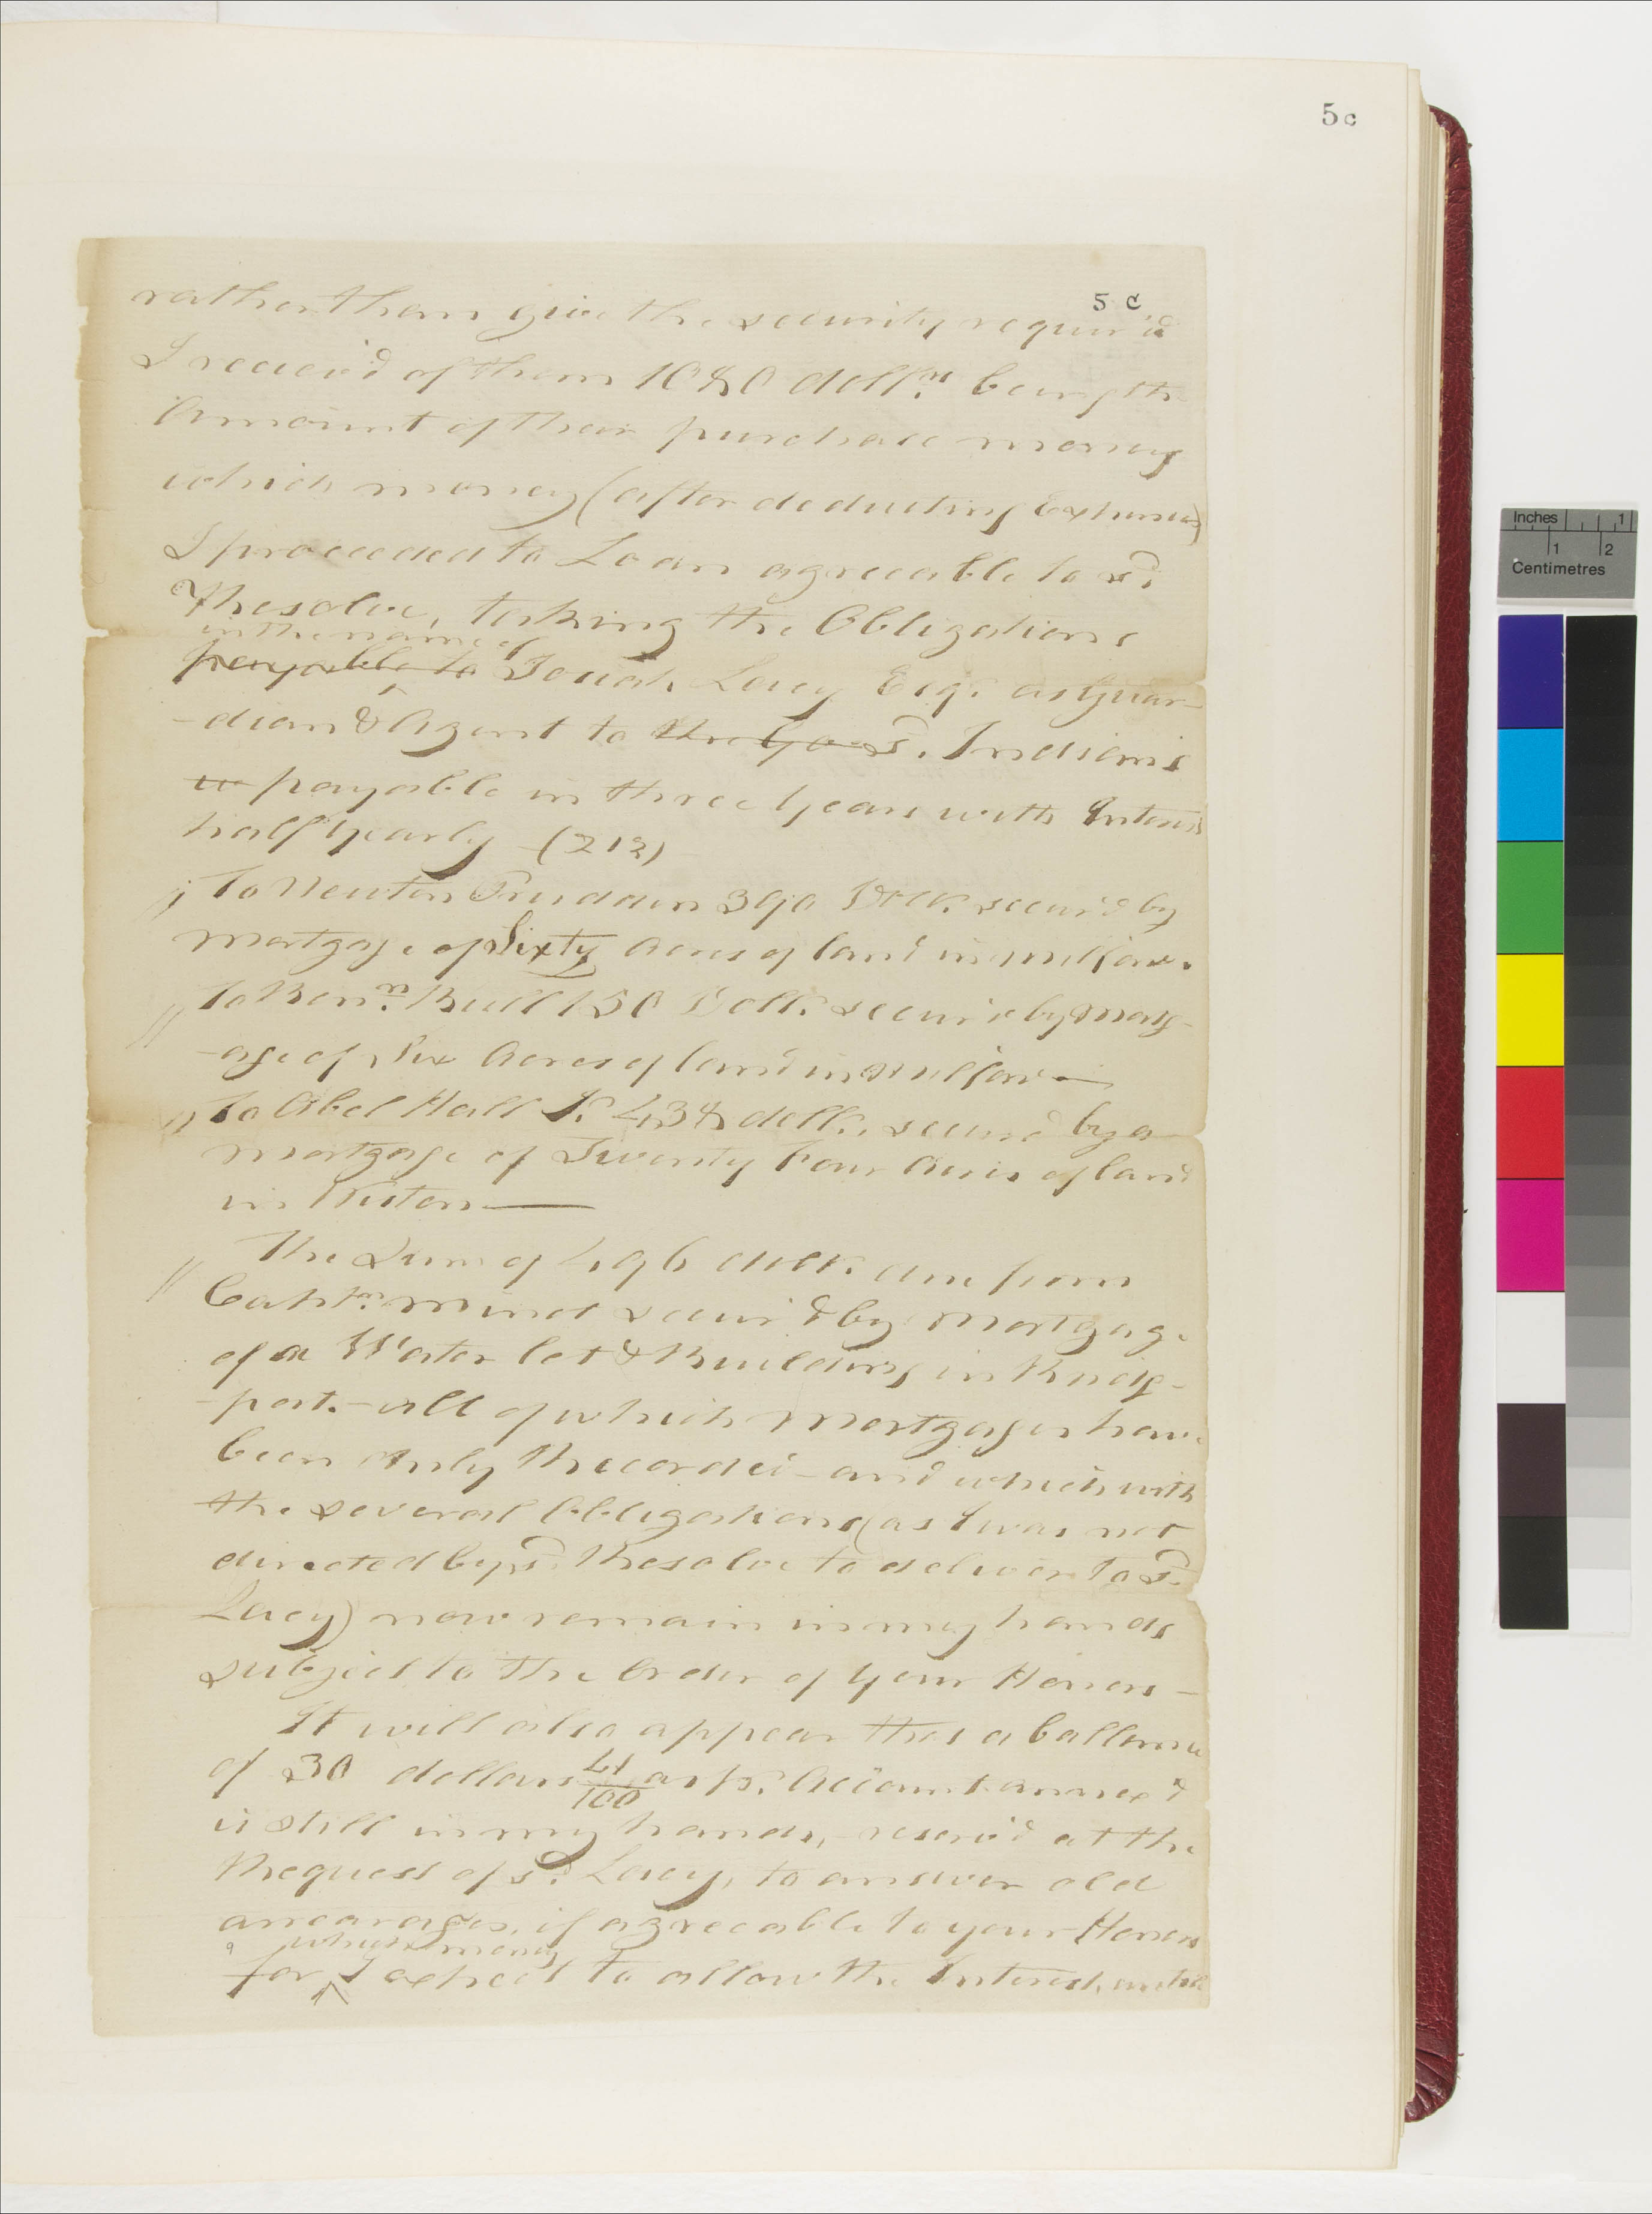 5c
5 c
rather than give the security requir'd
I receiv'd of them 1080 dollrs being the
Amount of their purchase money
which money (after deducting Expences)
I proceeded to Loan agreeable to sd
Resolve, taking the Obligations
in the name of
payable to Josiah Lacy Esqr as Guar-
-dian & Agent to the Go sd. Indians
payable in three Years with Interest
half Yearly (212)
To Newton Prudden 390 Dolls. secur'd by
mortgage of Sixty Acres of land in Milford.
To Benn. Bull 150 Dolls. secur'd by Mortg-
-age of Six Acres of land in Milford
To Abel Hall Jr. 438 dolls. secur'd by a
mortgage of Twenty Four Acres of land
in Huston
The Sum of 496 dolls. due from
Captn. Minot secur'd by Mortgage
of a Water lot & Building in Bridg-
-port. all of which Mortgages have
been duly Recorded - and which with
the several Obligations (as I was not
directed by sd. Resolve to deliver to sd.
Lacy) now remain in my hands
subject to the Order of Your Honors -
It will also appear that a ballance
of 30 dollars 41/100 as pr. Account annex'd
is still in my hands, reserv'd at the
Request of sd. Lacy, to answer old
arrearages, if agreeable to your Honors
which money
for I expect to allow the Interest, untill
Inches 1
1 2
Centimetres